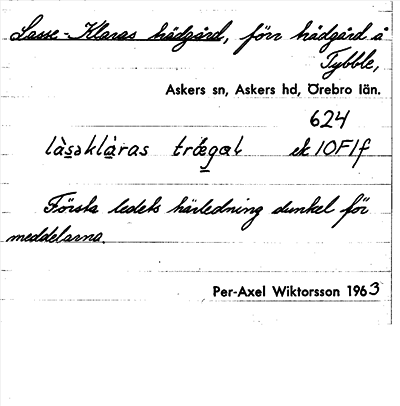 Lasse-Klaras hädgård, förr hädgård å
Tybble,
Askers sn, Askers hd, Örebro län.
624
làsəklàras trǽgaɫ ek 10F1f
Första ledets härledning dunkel för
meddelarna.
Per-Axel Wiktorsson 1963